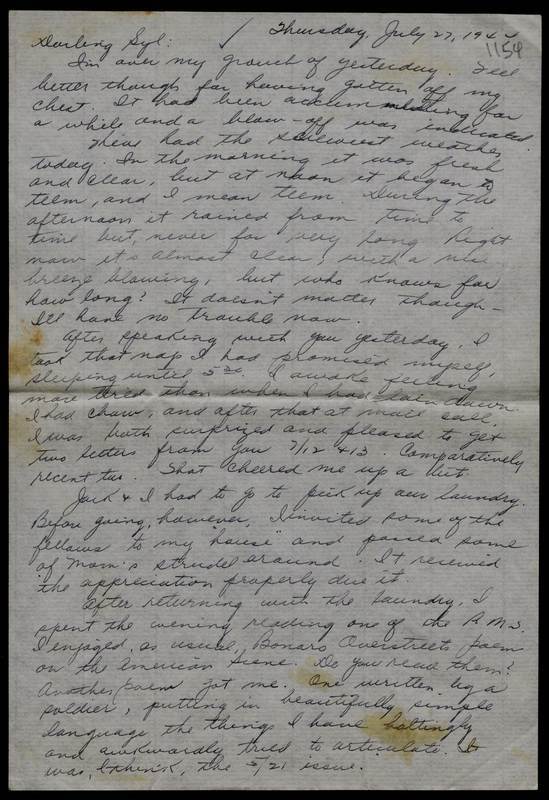 Thursday, July 27, 194
1154
Darling Syl: ✓
I'm over my grouch of yesterday. Feel
better though for having gotten off my
chest. It had been accummulating for
a while and a blow-off was indicated.
We've had the screwiest weather
today. In the morning it was fresh
and clear, but at noon it began to
teem, and I mean teem. During the
afternoon it rained from time to
time but, never for very long. Right
now it's almost clear, with a nice
breeze blowing, but who knows for
how long? It doesn't matter though-
I'll have no trouble now.
After speaking with you yesterday, I
took that nap I had promised myself,
sleeping until 5 30. I awoke feeling
more tired than when I had lain down.
I had chow, and after that at mail call,
I was both surprized and pleased to get
two letters from you 7/12 & 13. Comparatively
recent too. That cheered me up a bit.
Jack & I had to go to pick up our laundry.
Before going, however, I invited some of the
fellows "to my house" and passed some
of Mom's strudel around. It received
the appreciation properly due it.
After returning with the laundry, I
spent the evening reading one of the P.M.s.
I engaged, as usual, Bonaro Overstreets poem
on the American Scene. Do you read them?
Another poem got me. One written by a
soldier, putting in beautifully simple
language the things I have haltingly
and awkwardly tried to articulate. It
was, I think, the 5/21 issue.